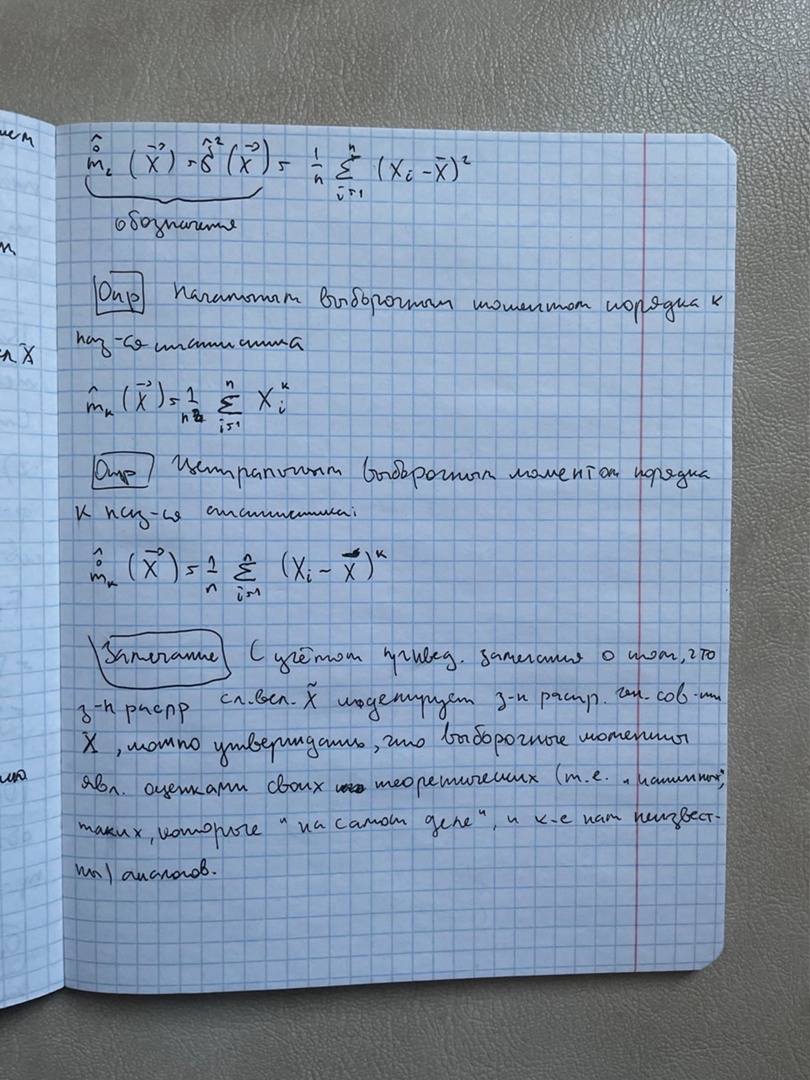 m̊̂₂ (X⃗) = σ̂² (X⃗) = 1/n Σ_{i=1}^{n} (Xᵢ - X̄)²
обозначения
Опр Начальным выборочным моментом порядка k
наз-ся статистика
m̂ₖ (X⃗) = 1/n Σ_{i=1}^{n} Xᵢᵏ
Опр Центральным выборочным моментом порядка
k наз-ся статистика:
m̊̂ₖ (X⃗) = 1/n Σ_{i=1}^{n} (Xᵢ - X̄)ᵏ
Замечание С учётом привед. замечания о том, что
з-н распр сл. вел. X̃ моделирует з-н распр. ген. сов-ти
X, можно утверждать, что выборочные моменты
явл. оценками своих теоретических (т.е. "истинных",
таких, которые "на самом деле", и к-е нам неизвест-
ны) аналогов.
ием
X̃